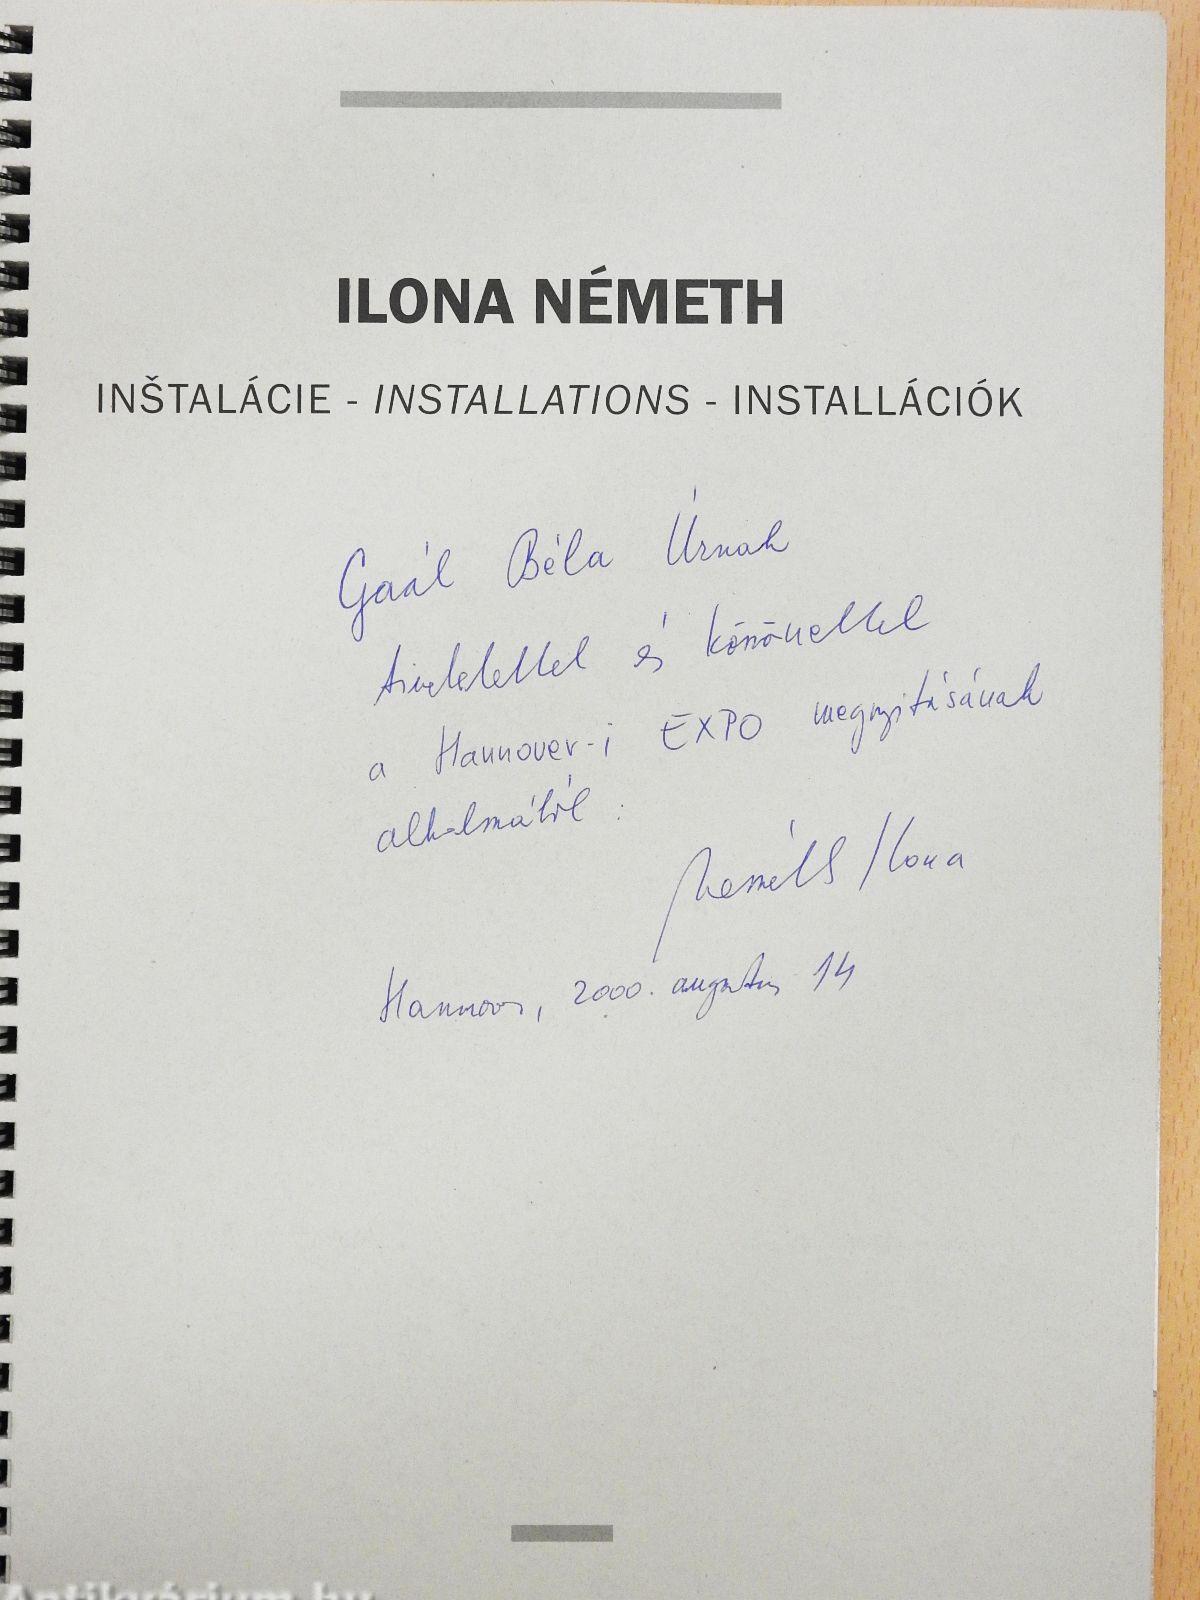 ILONA NÉMETH
INŠTALÁCIE - INSTALLATIONS - INSTALLÁCIÓK
Gaál Béla Úrnak
tisztelettel és köszönettel
a Hannover-i EXPO megnyitásának
alkalmából:
Németh Ilona
Hannover, 2000. augusztus 14
Antikvárium.hu